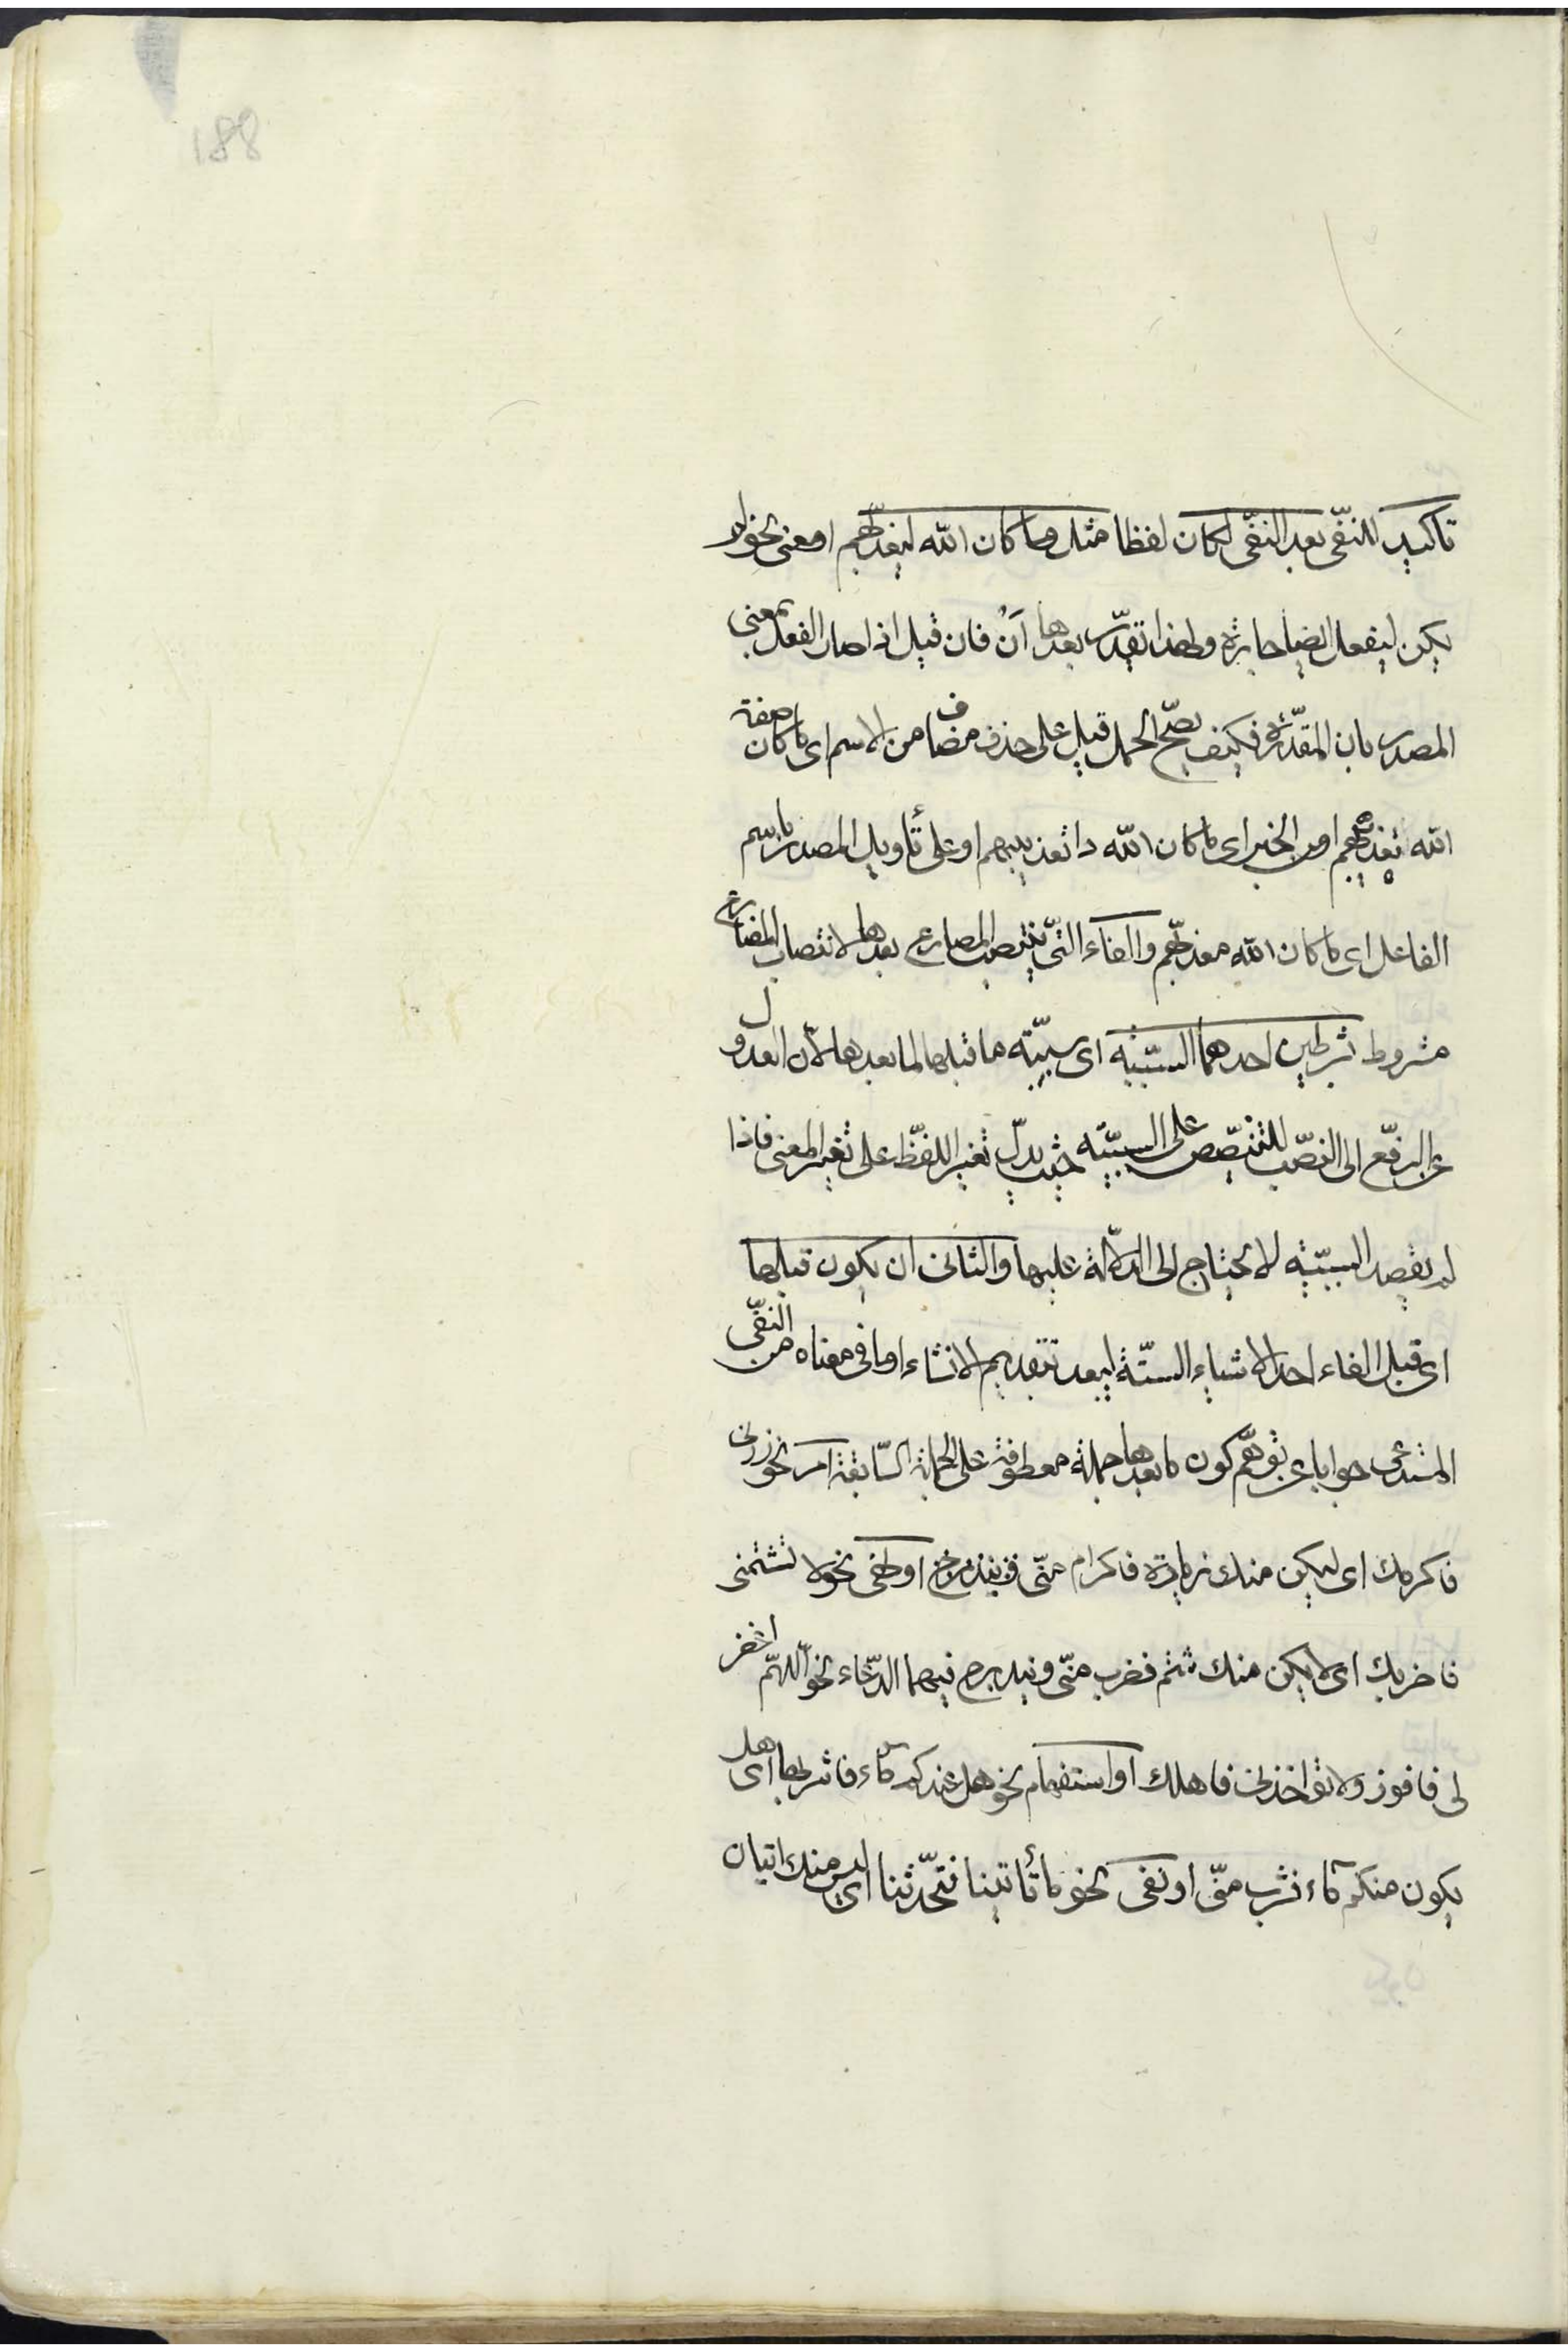 188
تاكيد للنفى بعد النفى لكان لفظا مثل وما كان الله ليعذبهم او معنى نحو لم
يكن ليفعل ايضا جارة ولهذا تقدر بعدها اَنْ فان قيل اذا صار الفعل بمعنى
المصدر بان المقدرة فكيف يصح الحمل قيل على حذف مضاف من الاسم اى ما كان صفة
الله تعذيبهم او من الخبر اى ما كان الله ذا تعذيبهم او على تأويل المصدر باسم
الفاعل اى ما كان الله معذبهم والفاء التى ينتصب المضارع بعدها لانتصاب المضارع
مشروط بشرطين احدهما السببية اى سببية ما قبلها لما بعدها لان العدول
عن الرفع الى النصب للتنصيص على السببية حيث يدل تغير اللفظ على تغير المعنى فاذا
لم يقصد السببية لا يحتاج الى الدلالة عليها والثانى ان يكون قبلها
اى قبل الفاء احد الاشياء الستة ليبعد بتقديم الانشاء او ما فى معناه من النفى
المستدعى جوابا عن توهم كون ما بعدها جملة معطوفة على الجملة السابقة امر نحو زرنى
فاكرمك اى ليكن منك زيارة فاكرام منى او نهى نحو لا تشتمنى
فاضربك اى لا يكن منك شتم فضرب منى ويندرج فيهما الدعاء نحو اللهم اغفر
لى فافوز ولا تؤاخذنى فاهلك او استفهام نحو هل عندكم ماء فاشربه اى هل
يكون منكم ماء فشرب منى او نفى نحو ما تأتينا فتحدثنا اى ليس منك اتيان